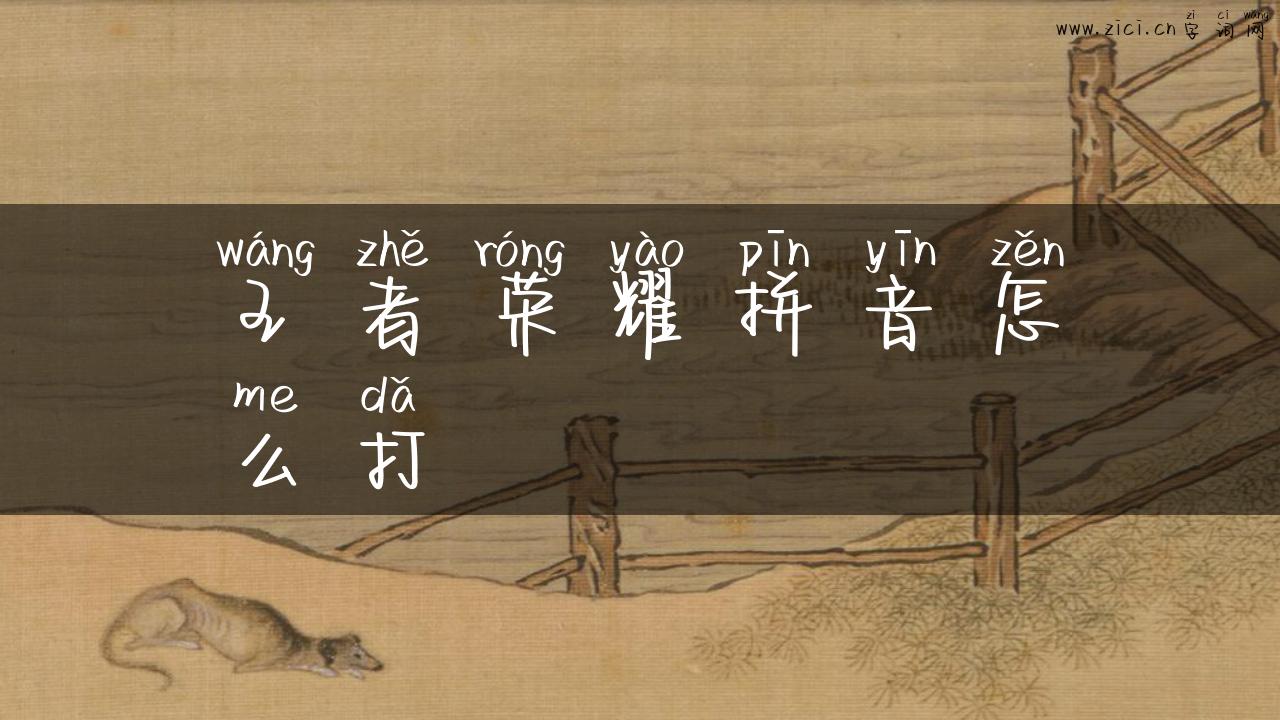 zì cí wǎng
www.zici.cn 字词网
wáng zhě róng yào pīn yīn zěn
王者荣耀拼音怎
me dǎ
么打